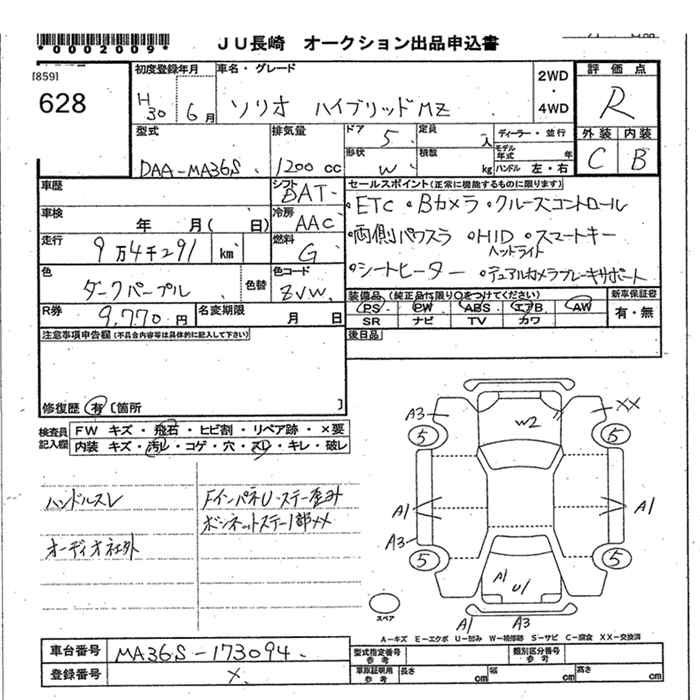 *0002009*
JU長崎 オークション出品申込書
[859]
628
初度登録年月 車名・グレード 評価点
H30 6月 ソリオ ハイブリッドMZ 2WD・4WD R
型式 排気量 ドア 5 定員 人 ディーラー・並行 外装 内装
形状 W 積数 kg モデル年式 年 ハンドル 左・右 C B
DAA-MA36S 1200cc
車歴 シフト DAT セールスポイント(正常に機能するものに限ります)
車検 年 月( 日) 冷房 AAC ・ETC ・Bカメラ ・クルーズコントロール
走行 9万4千291 km 燃料 G ・両側パワスラ ・HID ヘッドライト ・スマートキー
色 ダークパープル 色替 色コード ZVW ・シートヒーター ・デュアルカメラブレーキサポート
装備品(純正品に限り○をつけてください) 新車保証書
R券 9,770円 名変期限 月 日 PS PW ABS エアB AW 有・無
SR ナビ TV カワ
注意事項申告欄(不具合内容等は具体的に記入して下さい) 後日品
修復歴 有 [箇所 ]
検査員記入欄 FW キズ・飛石・ヒビ割・リペア跡・×要
内装 キズ・汚レ・コゲ・穴・スレ・キレ・破レ
ハンドルスレ FインパネU・ステー歪み
ボンネットステー1部××
オーディオ社外
A3 W2 XX
5 5
A1 A1
A3
5 5
A1 U1
スペア
A1 A3
A-キズ E-エクボ U-凹み W-補修跡 S-サビ C-腐食 XX-交換済
車台番号 MA36S-173094 型式指定番号 参考 類別区分番号 参考
登録番号 × 車庫証明用 参考 長さ cm 幅 cm 高さ cm